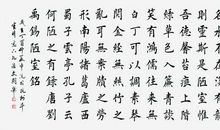 則靈斯是陋室惟
吾德馨苔痕上階
綠草色入簾青談
笑有鴻儒往來無
白丁可以調素琴
閱金經無絲竹之
亂耳無案牘之勞
形南陽諸葛廬西
蜀子雲亭孔子云
何陋之有錄唐劉
禹錫陋室銘